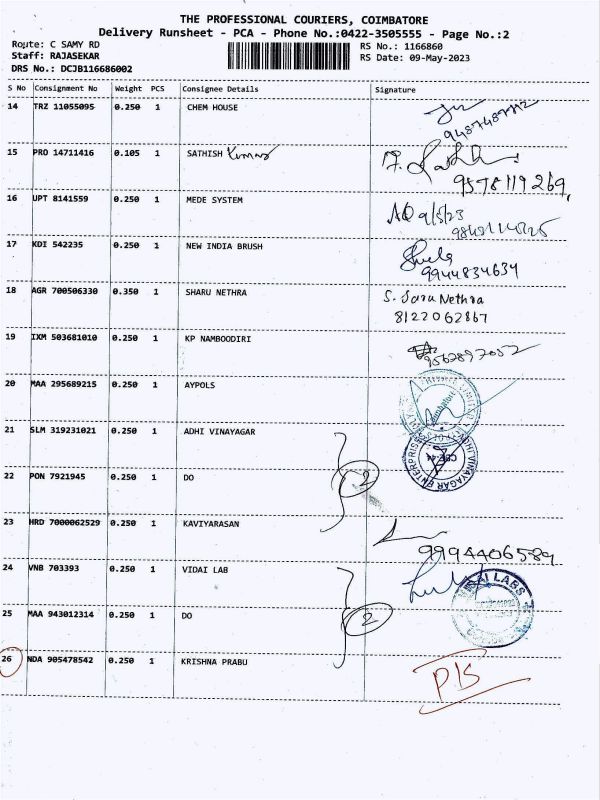 THE PROFESSIONAL COURIERS, COIMBATORE
Delivery Runsheet - PCA - Phone No.:0422-3505555 - Page No.:2
Route: C SAMY RD
RS No.: 1166860
Staff: RAJASEKAR
RS Date: 09-May-2023
DRS No.: DCJB116686002
S No Consignment No Weight PCS Consignee Details Signature
14 TRZ 11055095 0.250 1 CHEM HOUSE
15 PRO 14711416 0.105 1 SATHISH Kumar
9578119269
16 UPT 8141559 0.250 1 MEDE SYSTEM
9/5/23
17 KDI 542235 0.250 1 NEW INDIA BRUSH
9944834634
18 AGR 700506330 0.350 1 SHARU NETHRA S. Saru Nethra
8122062867
19 IXM 503681010 0.250 1 KP NAMBOODIRI
20 MAA 295689215 0.250 1 AYPOLS
21 SLM 319231021 0.250 1 ADHI VINAYAGAR
22 PON 7921945 0.250 1 DO 2
23 HRD 7000062529 0.250 1 KAVIYARASAN
9994406589
24 VNB 703393 0.250 1 VIDAI LAB
25 MAA 943012314 0.250 1 DO 2
26 NDA 905478542 0.250 1 KRISHNA PRABU